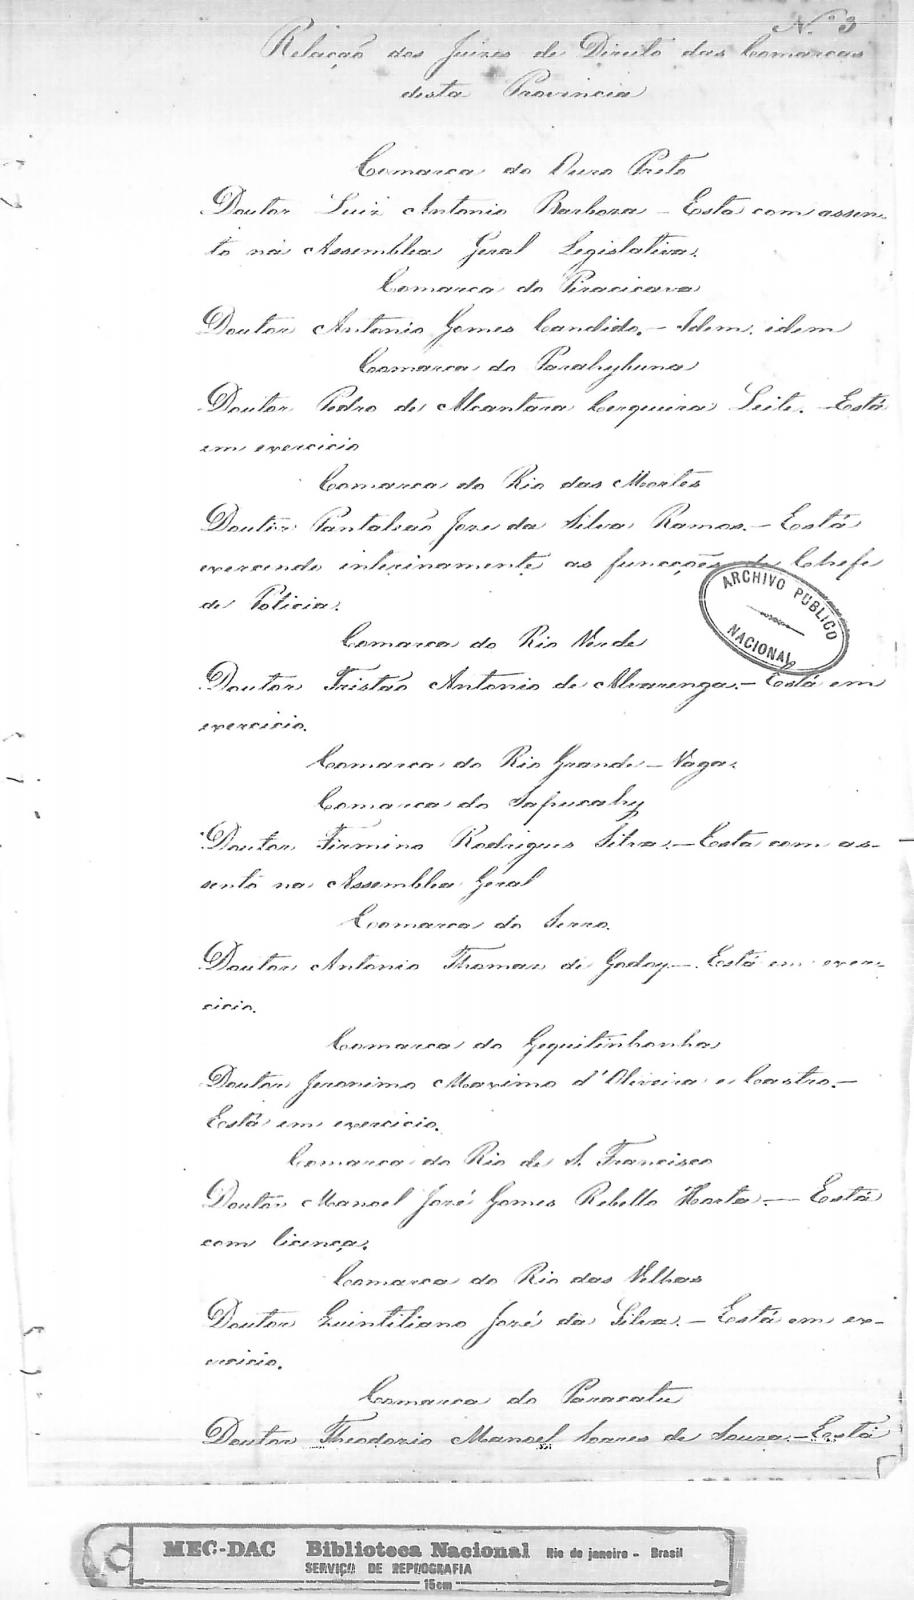 N.º 3
Relação dos Juizes de Direito das Comarcas
desta Provincia
Comarca do Ouro Preto
Doutor Luiz Antonio Barboza - Está com assen-
to na Assemblea Geral Legislativa.
Comarca do Piracicava
Doutor Antonio Gomes Candido. - Idem, idem
Comarca do Parahybuna
Doutor Pedro de Alcantara Cerqueira Leite. - Está
em exercicio
Comarca do Rio das Mortes
Doutor Pantaleão José da Silva Ramos. - Está
exercendo interinamente as funcções de Chefe
de Policia.
Comarca do Rio Verde
Doutor Tristão Antonio de Alvarenga. - Está em
exercicio.
Comarca do Rio Grande - Vaga.
Comarca do Sapucahy
Doutor Firmino Rodrigues Silva. - Está com as-
sento na Assemblea Geral
Comarca do Serro.
Doutor Antonio Thomaz de Godoy - Está em exer-
cicio.
Comarca do Gequitinhonha
Doutor Jeronimo Maximo d'Oliveira e Castro. -
Está em exercicio.
Comarca do Rio de S. Francisco
Doutor Manoel José Gomes Rebello Horta. - Está
com licença.
Comarca do Rio das Velhas
Doutor Quintiliano José da Silva. - Está em ex-
ercicio.
Comarca do Paracatu
Doutor Theodozio Manoel Soares de Souza. - Está
ARCHIVO PUBLICO
NACIONAL
MEC-DAC Biblioteca Nacional Rio de janeiro - Brasil
SERVIÇO DE REPROGRAFIA
15cm